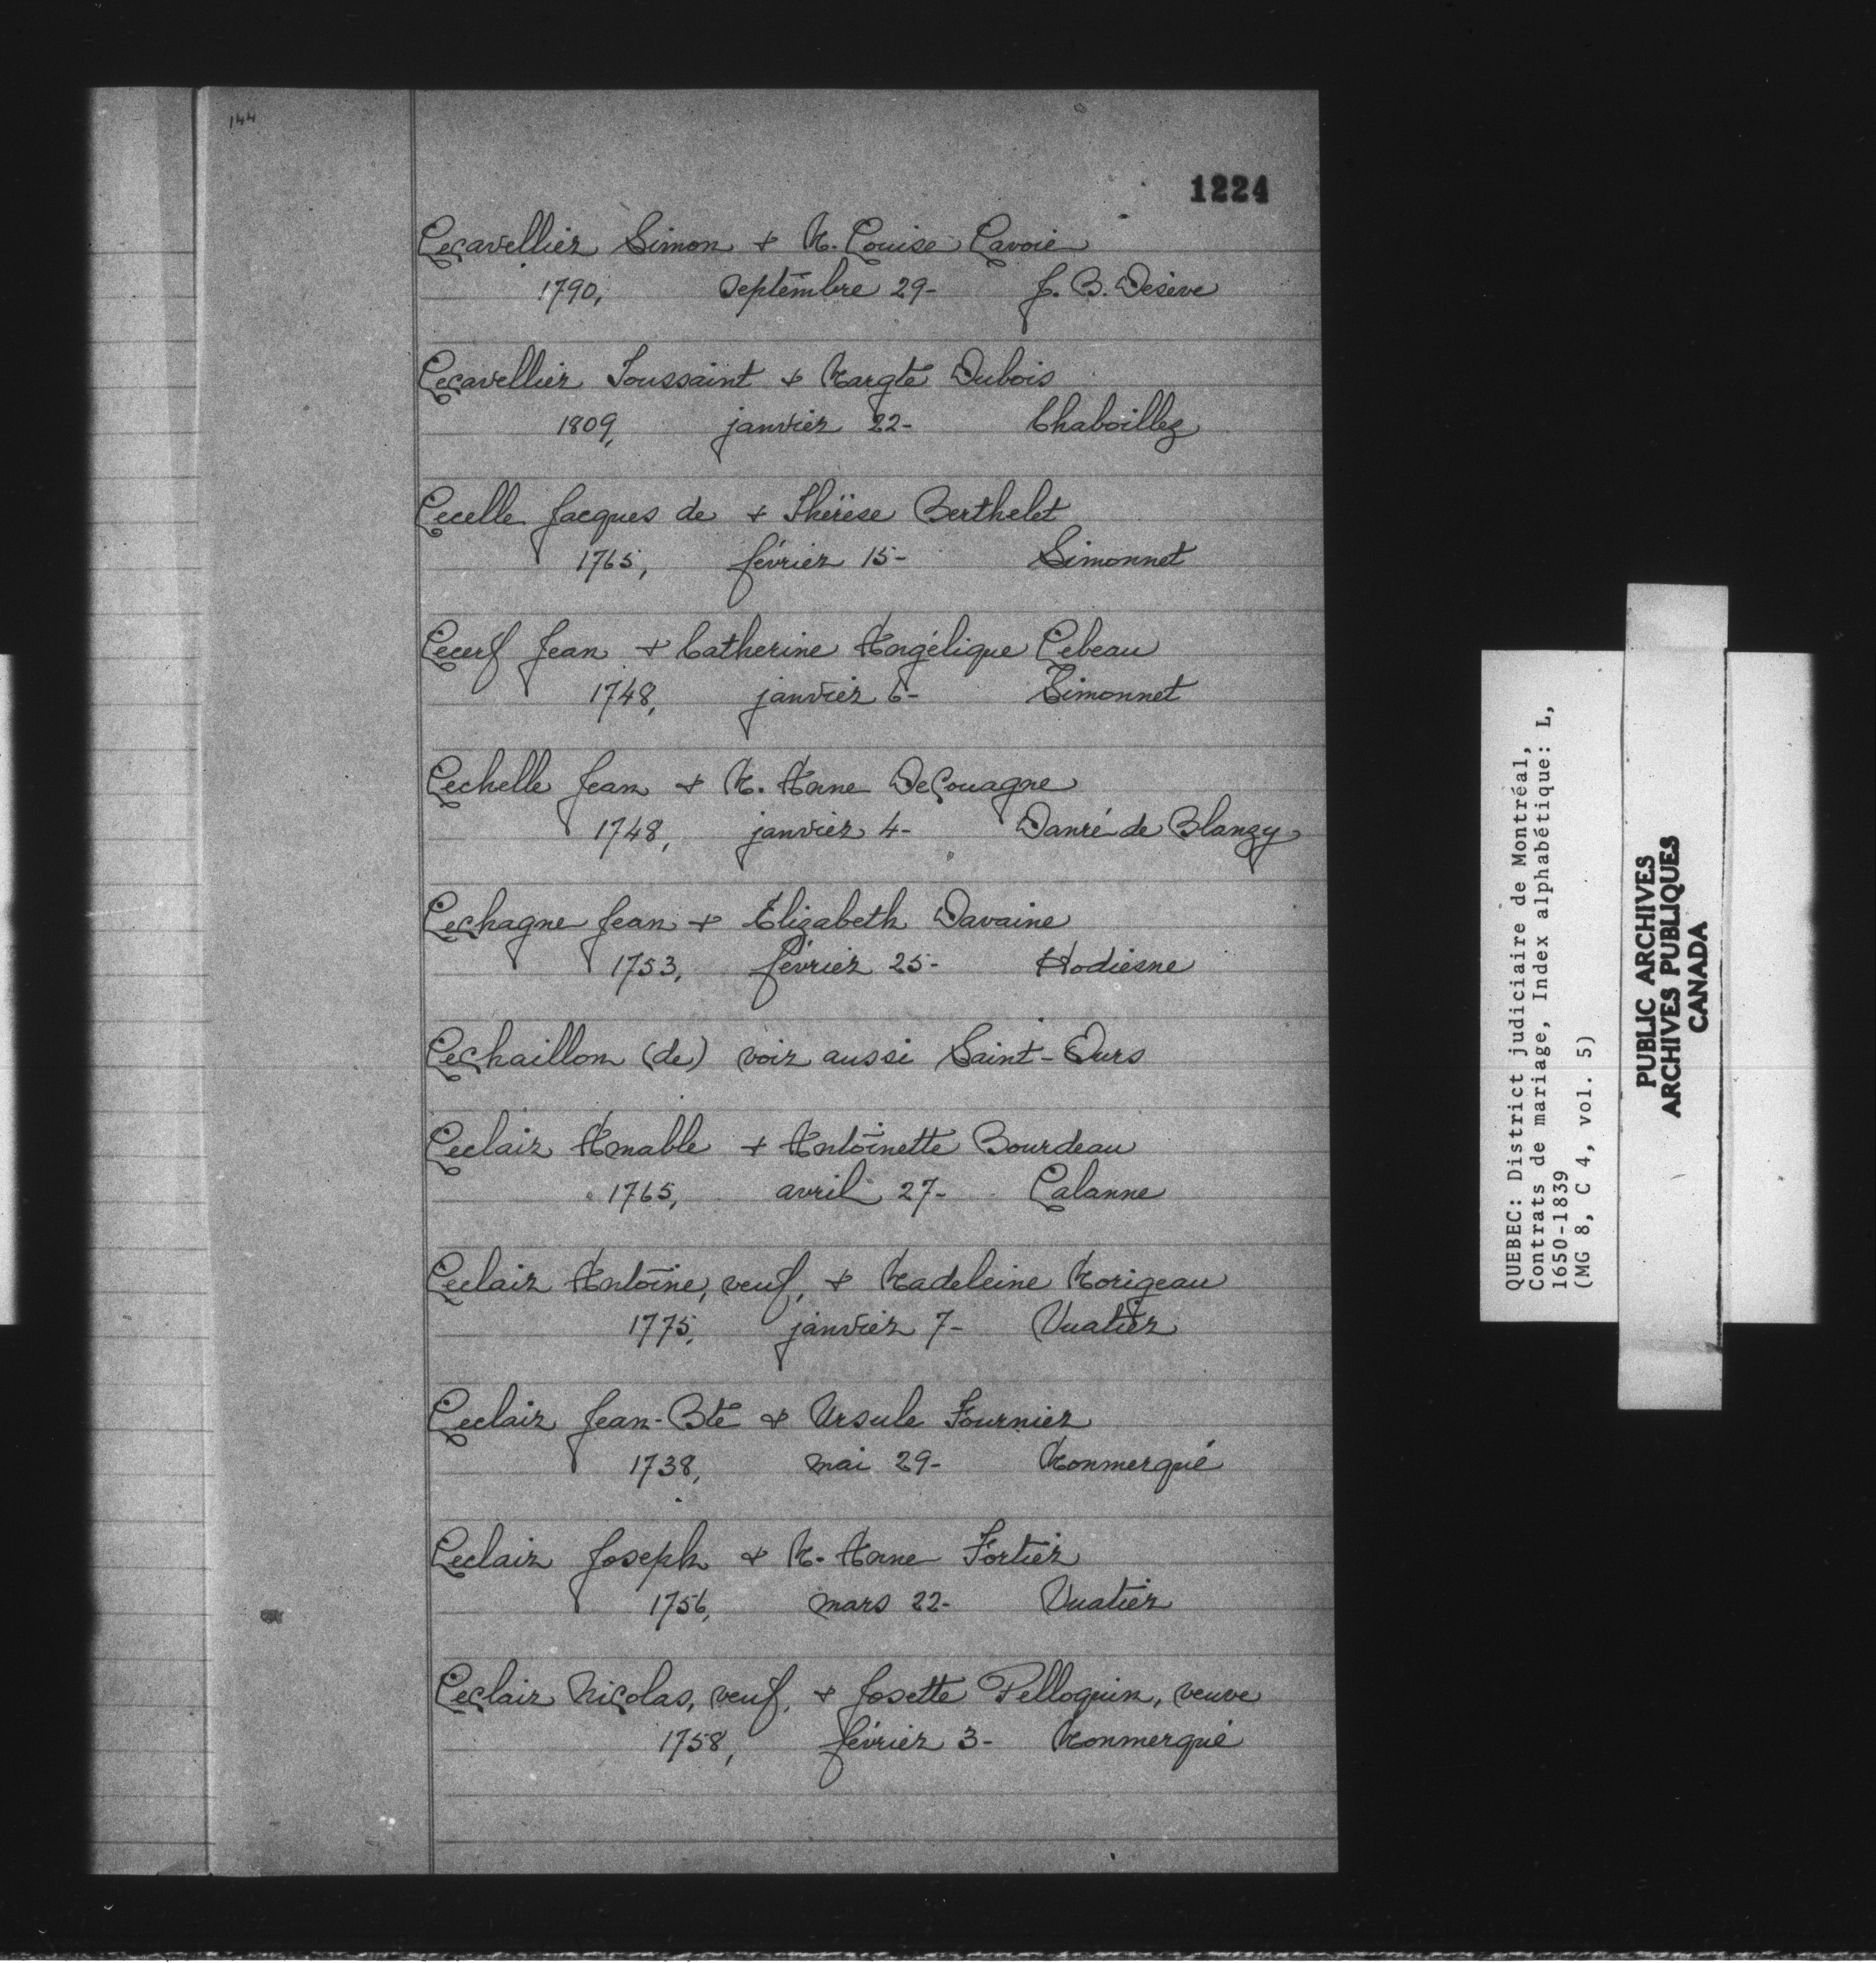 144
1224
Lecavellier Simon & M. Louise Lavoie
1790, septembre 29- J. B. Desève
Lecavellier Toussaint & Margte Dubois
1809, janvier 22- Chaboillez
Lecelle Jacques de & Thérèse Berthelet
1765, février 15- Simonnet
Lecerf Jean & Catherine Angélique Lebeau
1748, janvier 6- Simonnet
Lechelle Jean & M. Anne DeCouagne
1748, janvier 4- Danré de Blanzy
Lechagne Jean & Elizabeth Davaine
1753, février 25- Hodiesne
Lechaillon (de) voir aussi Saint-Ours
Leclair Amable & Antoinette Bourdeau
1765, avril 27- Lalanne
Leclair Antoine, veuf, & Madeleine Morigeau
1775, janvier 7- Vuatier
Leclair Jean-Bte & Ursule Fournier
1738, mai 29- Monmerqué
Leclair Joseph & M. Anne Fortier
1756, mars 22- Vuatier
Leclair Nicolas, veuf, & Josette Pelloquin, veuve
1758, février 3- Monmerqué
QUEBEC: District judiciaire de Montréal,
Contrats de mariage, Index alphabétique: L,
1650-1839
(MG 8, C 4, vol. 5)
PUBLIC ARCHIVES
ARCHIVES PUBLIQUES
CANADA